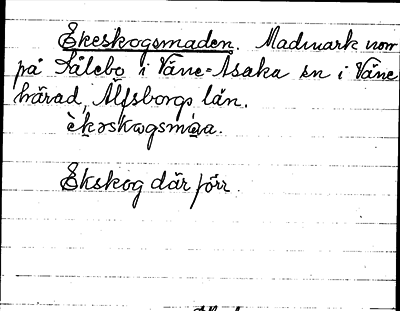 Ekeskogsmaden. Madmark norr
på Kålebo i Väne-Åsaka sn i Väne
härad, Älfsborgs län.
èkəskωgsmàa.
Ekskog där förr.